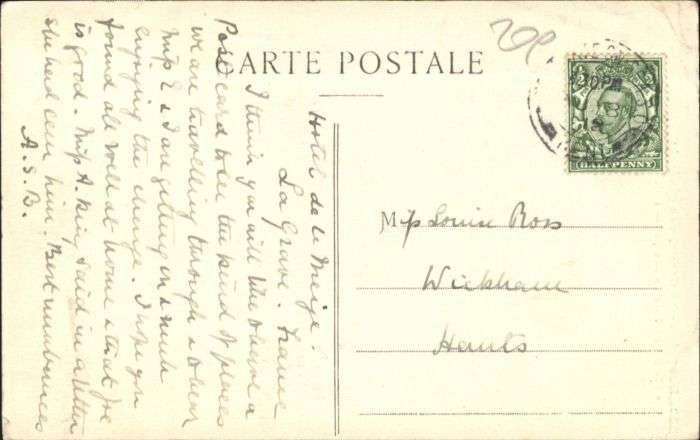 CARTE POSTALE
Hotel de la Meije.
La Grave. France
I think you will like to have a
Post card to see the kind of places
we are travelling through & to hear
Miss E & I are getting on & much
enjoying the change. I hope you
found all well at home & that Joe
is good. Miss A. King said in a letter
she had seen him. Best remembrances
A.S.B.
Miss Louise Ross
Wickham
Hants
HALFPENNY